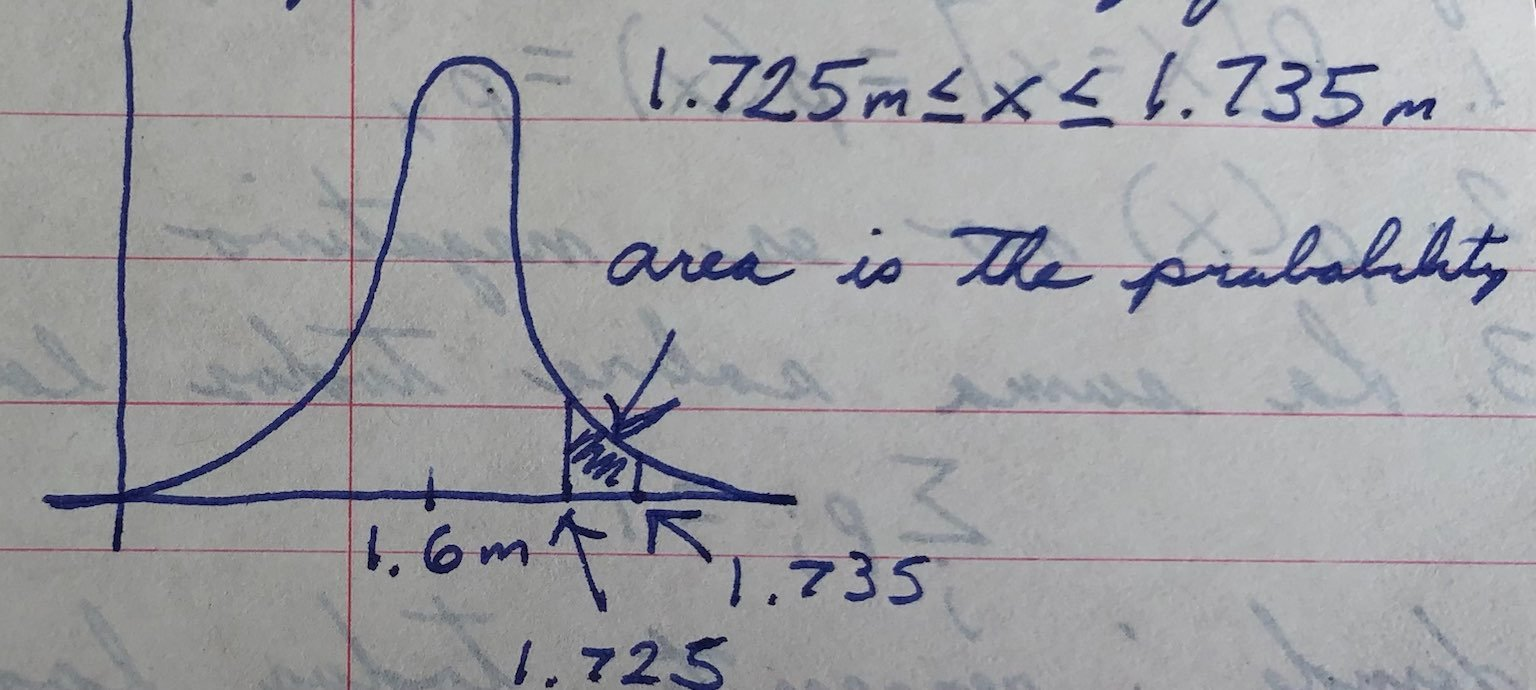 1.725m ≤ x ≤ 1.735m
area is the probability
1.6m
1.735
1.725